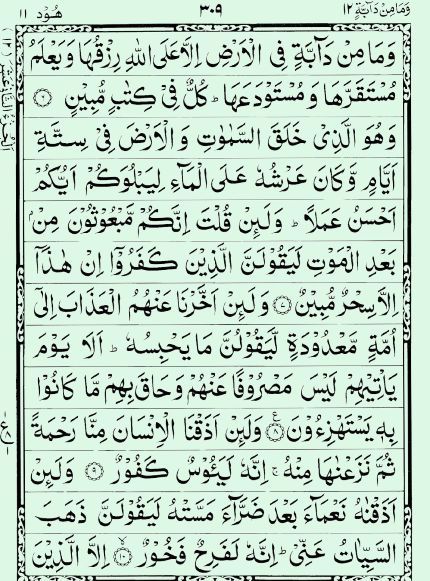 وَمَا مِنْ دَآبَّةٍ ١٢
٣٠٩
هُوْد ١١
وَمَا مِنْ دَآبَّةٍ فِى الْاَرْضِ اِلَّا عَلَى اللّٰهِ رِزْقُهَا وَيَعْلَمُ
مُسْتَقَرَّهَا وَمُسْتَوْدَعَهَا ؕ كُلٌّ فِىْ كِتٰبٍ مُّبِيْنٍ ۝۶
وَهُوَ الَّذِىْ خَلَقَ السَّمٰوٰتِ وَالْاَرْضَ فِىْ سِتَّةِ
اَيَّامٍ وَّكَانَ عَرْشُهٗ عَلَى الْمَآءِ لِيَبْلُوَكُمْ اَيُّكُمْ
اَحْسَنُ عَمَلًا ؕ وَلَئِنْ قُلْتَ اِنَّكُمْ مَّبْعُوْثُوْنَ مِنْۢ
بَعْدِ الْمَوْتِ لَيَقُوْلَنَّ الَّذِيْنَ كَفَرُوْۤا اِنْ هٰذَاۤ
اِلَّا سِحْرٌ مُّبِيْنٌ ۝۷ وَلَئِنْ اَخَّرْنَا عَنْهُمُ الْعَذَابَ اِلٰٓى
اُمَّةٍ مَّعْدُوْدَةٍ لَّيَقُوْلُنَّ مَا يَحْبِسُهٗ ؕ اَلَا يَوْمَ
يَاْتِيْهِمْ لَيْسَ مَصْرُوْفًا عَنْهُمْ وَحَاقَ بِهِمْ مَّا كَانُوْا
بِهٖ يَسْتَهْزِءُوْنَ ۝۸ وَلَئِنْ اَذَقْنَا الْاِنْسَانَ مِنَّا رَحْمَةً
ثُمَّ نَزَعْنٰهَا مِنْهُ ۚ اِنَّهٗ لَيَئُوْسٌ كَفُوْرٌ ۝۹ وَلَئِنْ
اَذَقْنٰهُ نَعْمَآءَ بَعْدَ ضَرَّآءَ مَسَّتْهُ لَيَقُوْلَنَّ ذَهَبَ
السَّيِّاٰتُ عَنِّىْ ؕ اِنَّهٗ لَفَرِحٌ فَخُوْرٌ ۝۱۰ اِلَّا الَّذِيْنَ